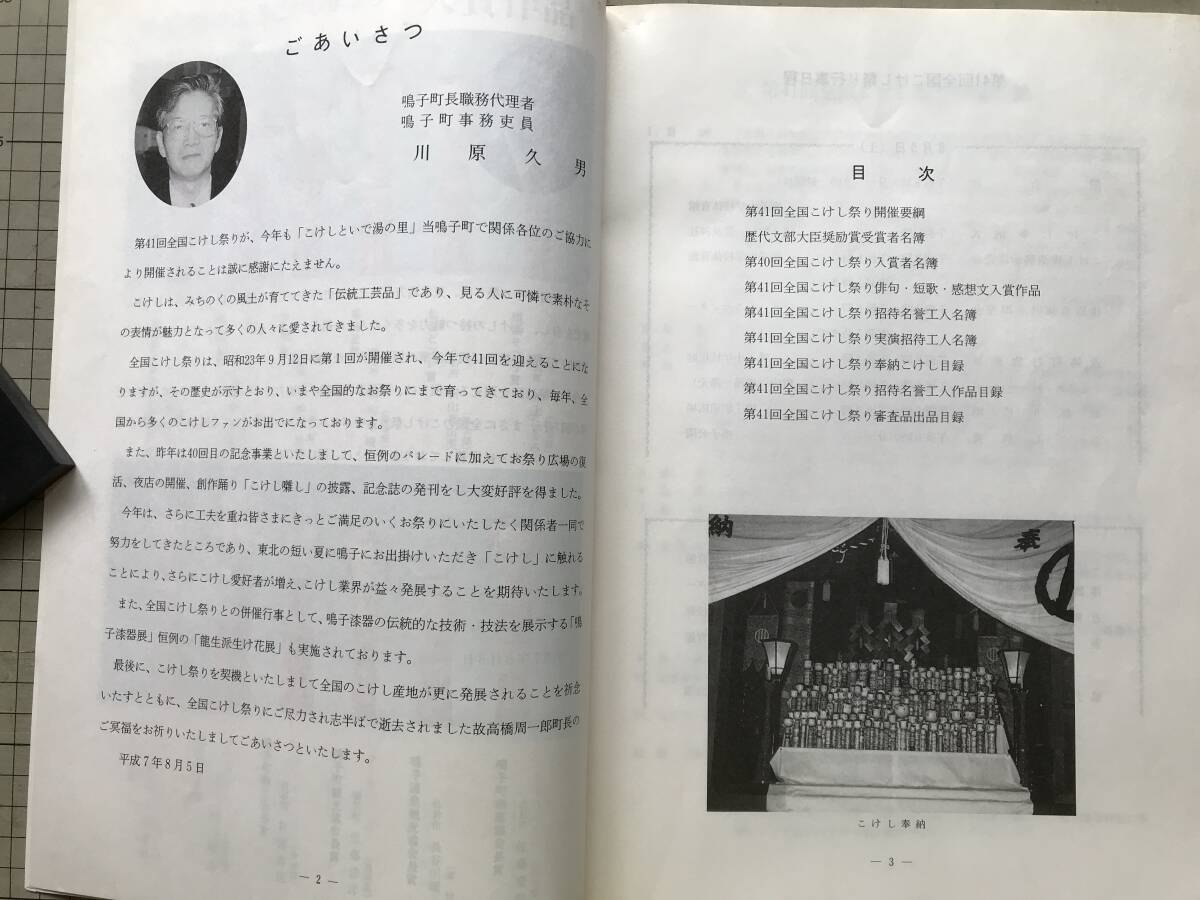 ごあいさつ
鳴子町長職務代理者
鳴子町事務吏員
川原久男
第41回全国こけし祭りが、今年も「こけしといで湯の里」当鳴子町で関係各位のご協力に
より開催されることは誠に感謝にたえません。
こけしは、みちのくの風土が育ててきた「伝統工芸品」であり、見る人に可憐で素朴なそ
の表情が魅力となって多くの人々に愛されてきました。
全国こけし祭りは、昭和23年9月12日に第1回が開催され、今年で41回を迎えることにな
りますが、その歴史が示すとおり、いまや全国的なお祭りにまで育ってきており、毎年、全
国から多くのこけしファンがお出でになっております。
また、昨年は40回目の記念事業といたしまして、恒例のパレードに加えてお祭り広場の復
活、夜店の開催、創作踊り「こけし囃し」の披露、記念誌の発刊をし大変好評を得ました。
今年は、さらに工夫を重ね皆さまにきっとご満足のいくお祭りにいたしたく関係者一同で
努力をしてきたところであり、東北の短い夏に鳴子にお出掛けいただき「こけし」に触れる
ことにより、さらにこけし愛好者が増え、こけし業界が益々発展することを期待いたします。
また、全国こけし祭りとの併催行事として、鳴子漆器の伝統的な技術・技法を展示する「鳴
子漆器展」恒例の「龍生派生け花展」も実施されております。
最後に、こけし祭りを契機といたしまして全国のこけし産地が更に発展されることを祈念
いたすとともに、全国こけし祭りにご尽力され志半ばで逝去されました故高橋周一郎町長の
ご冥福をお祈りいたしましてごあいさつといたします。
平成7年8月5日
— 2 —
目次
第41回全国こけし祭り開催要綱
歴代文部大臣奨励賞受賞者名簿
第40回全国こけし祭り入賞者名簿
第41回全国こけし祭り俳句・短歌・感想文入賞作品
第41回全国こけし祭り招待名誉工人名簿
第41回全国こけし祭り実演招待工人名簿
第41回全国こけし祭り奉納こけし目録
第41回全国こけし祭り招待名誉工人作品目録
第41回全国こけし祭り審査品出品目録
納
奉
こけし奉納
— 3 —